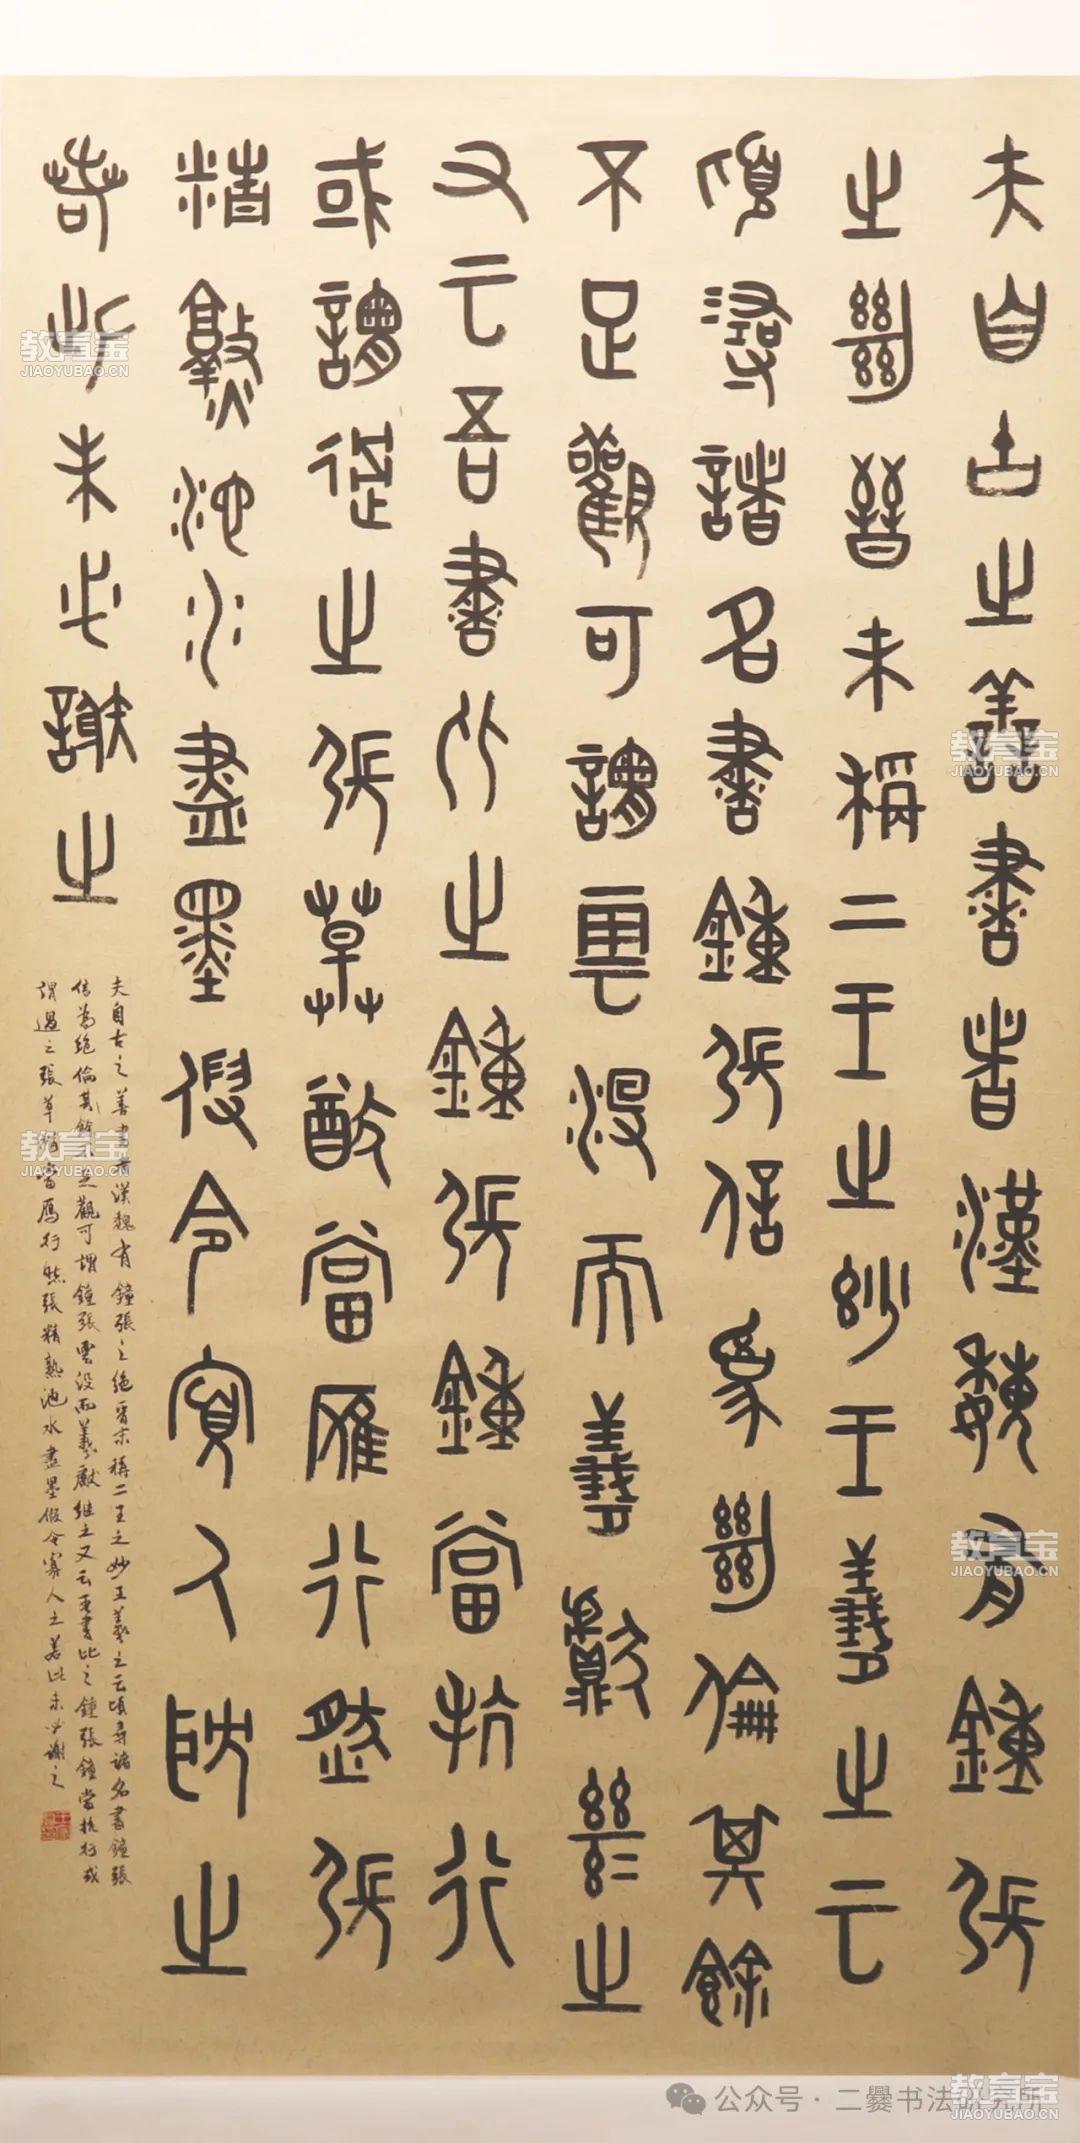 夫自古之善書者漢魏有鍾張
之絕晉末稱二王之妙王羲之云
頃尋諸名書鍾張信為絕倫其餘
不足觀可謂雲沒而羲獻繼之
又云吾書比之鍾張鍾當抗行
或謂過之張草猶當雁行然張
精熟池水盡墨假令寡人耽之
若此未必謝之
夫自古之善書者漢魏有鐘張之絕晉末稱二王之妙王羲之云頃尋諸名書鐘張
信為絕倫其餘不足觀可謂鐘張雲沒而羲獻继之又云吾書比之鐘張鐘當抗行或
謂過之張草猶當雁行然張精熟池水盡墨假令寡人之若此未必謝之
教育宝
JIAOYUBAO.CN
教育宝
JIAOYUBAO.CN
教育宝
JIAOYUBAO.CN
教育宝
JIAOYUBAO.CN
公众号·二爨书法研究所
教育宝
JIAOYUBAO.CN